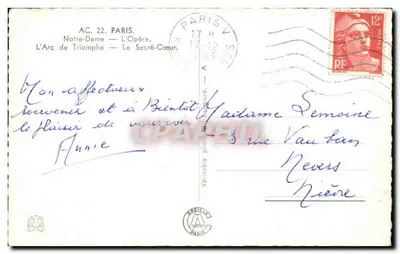 AC. 22. PARIS.
Notre-Dame — L'Opéra.
L'Arc de Triomphe — Le Sacré-Cœur.
PARIS V
12F
RF
Mon affectueux
souvenir et à Bientôt
le plaisir de vous revoir
Annie
Madame Lemoine
3 rue Vauban
Nevers
Nièvre
Cartorum
ABEILLE
PARIS